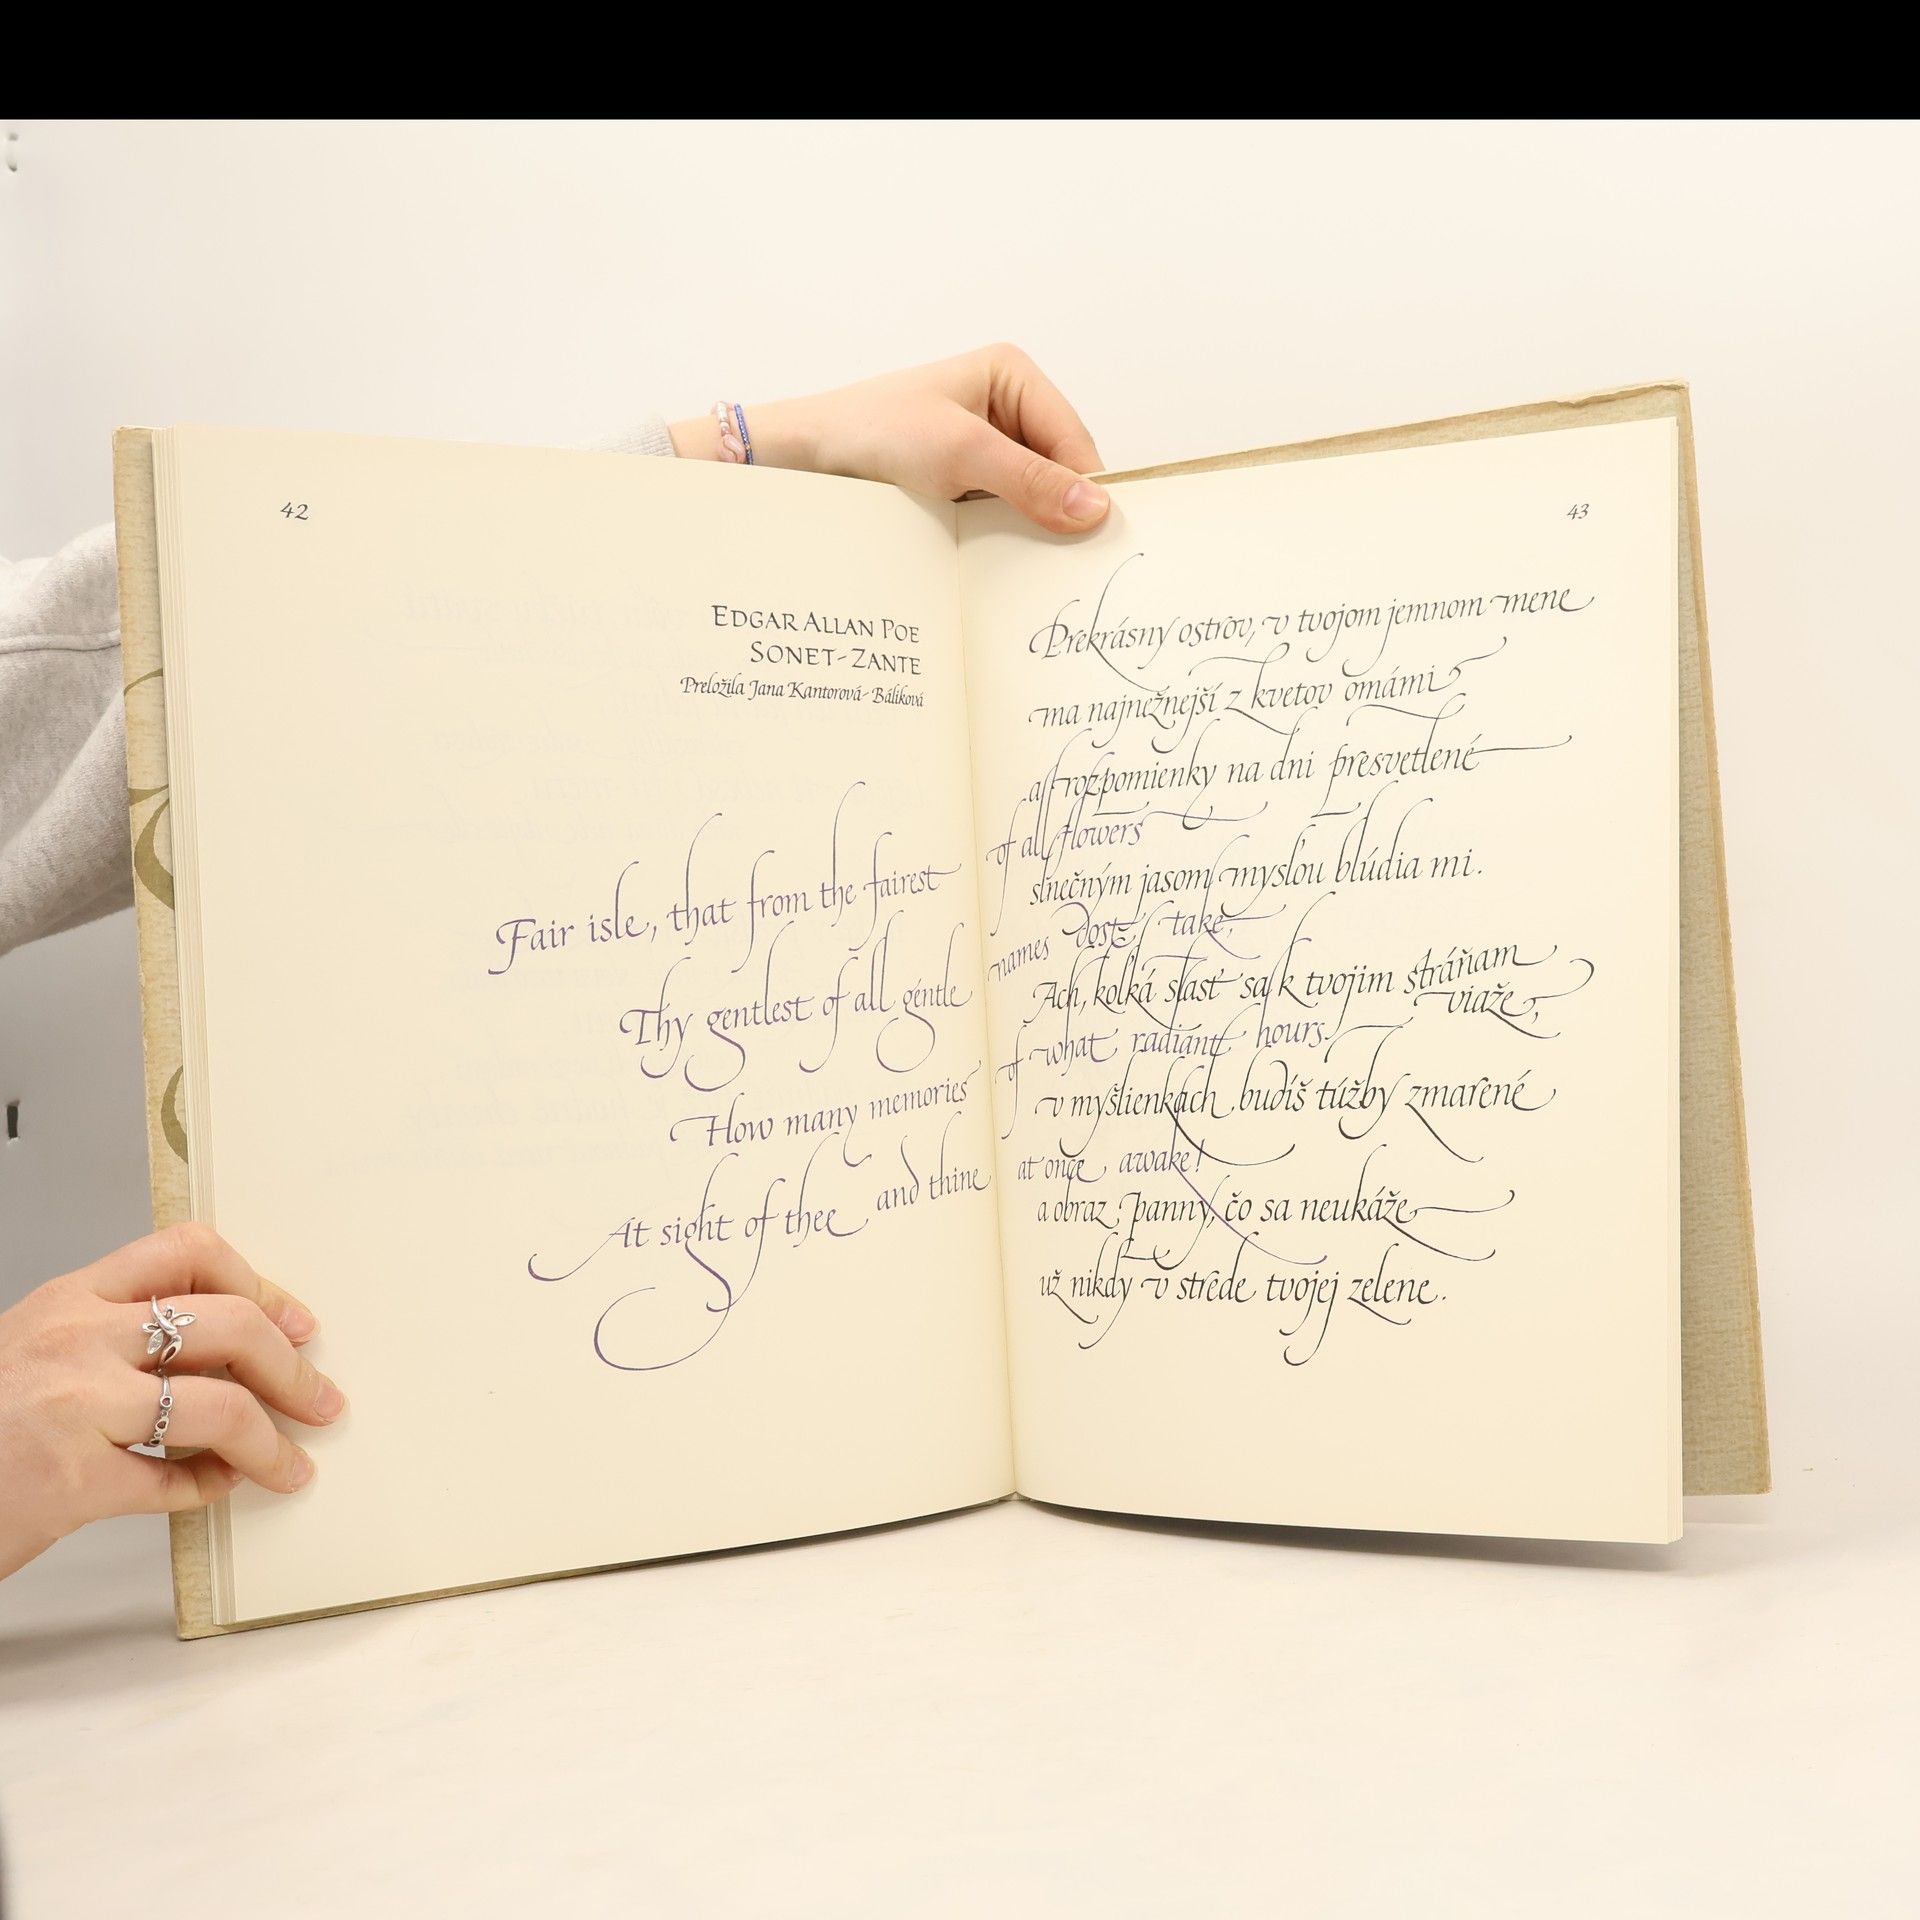 42
EDGAR ALLAN POE
SONET-ZANTE
Preložila Jana Kantorová-Báliková
Fair isle, that from the fairest of all flowers
Thy gentlest of all gentle names dost take,
How many memories of what radiant hours
At sight of thee and thine at once awake!
43
Prekrásny ostrov, v tvojom jemnom mene
ma najnežnejší z kvetov omámi
a rozpomienky na dni presvetlené
slnečným jasom mysľou blúdia mi.
Ach, koľká slasť sa k tvojim stráňam
viaže,
v myšlienkach budíš túžby zmarené
a obraz panny, čo sa neukáže
už nikdy v strede tvojej zelene.